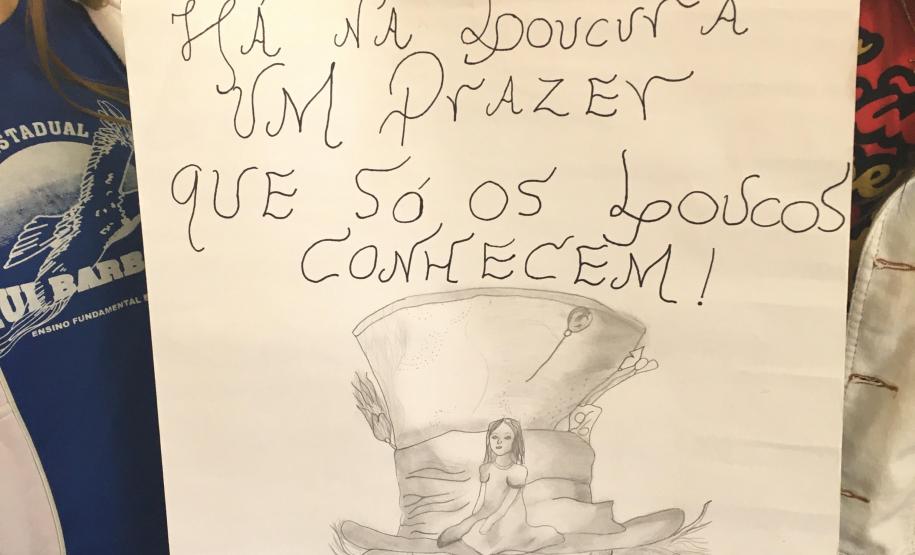 HÁ NA LOUCURA
UM PRAZER
QUE SÓ OS LOUCOS
CONHECEM!
STADUAL
UI BARB
ENSINO FUNDAMENTAL E